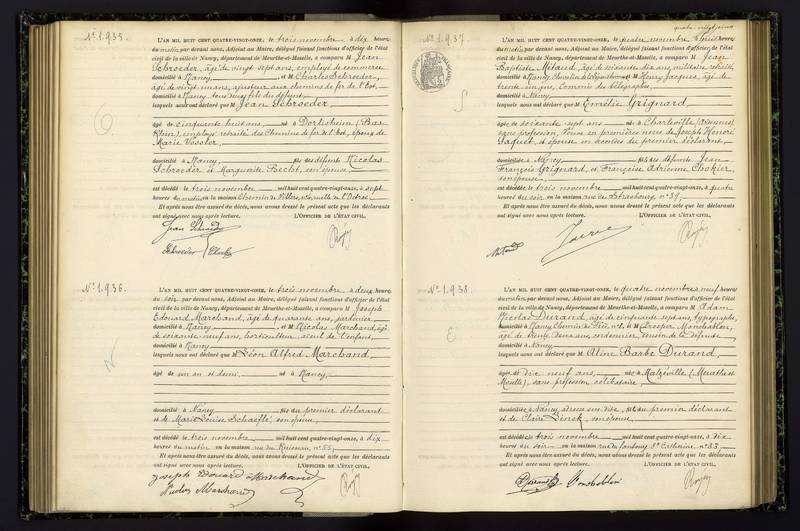 N° 1.935.
L'AN MIL HUIT CENT QUATRE-VINGT-ONZE, le trois novembre à dix heures
du matin par devant nous, Adjoint au Maire, délégué faisant fonctions d'officier de l'état
civil de la ville de Nancy, département de Meurthe-et-Moselle, a comparu M Jean
Schroeder, âgé de vingt sept ans, employé de commerce
domicilié à Nancy, et M Charles Schroeder,
âgé de vingt un ans, ajusteur aux chemins de fer de l'Est,
domicilié à Nancy, tous deux fils du défunt,
lesquels nous ont déclaré que M Jean Schroeder
âgé de cinquante huit ans, né à Dorlisheim (Bas
Rhin), employé retraité des Chemins de fer de l'Est, époux de
Marie Vossler,
domicilié à Nancy fils des défunts Nicolas
Schroeder et Marguerite Becht, son épouse,
est décédé le trois novembre mil huit cent quatre-vingt-onze, à sept
heures du matin, en la maison Chemin de
Et après nous être assuré du décès, nous avons dressé le présent acte que les déclarants
ont signé avec nous après lecture. L'OFFICIER DE L'ÉTAT CIVIL,
Jean Schroeder
Schroeder Charles
N° 1.936.
L'AN MIL HUIT CENT QUATRE-VINGT-ONZE, le trois novembre à deux heures
du soir par devant nous, Adjoint au Maire, délégué faisant fonctions d'officier de l'état
civil de la ville de Nancy, département de Meurthe-et-Moselle, a comparu M Joseph
Edouard Marchand, âgé de quarante ans, jardinier,
domicilié à Nancy, et M Nicolas Marchand, âgé
de soixante neuf ans, horticulteur, aïeul de l'enfant,
domicilié à Nancy
lesquels nous ont déclaré que M Léon Alfred Marchand,
âgé de un an et demi, né à Nancy,
domicilié à Nancy fils du premier déclarant
et de Marie Louise Schaefflé, son épouse,
est décédé le trois novembre mil huit cent quatre-vingt-onze, à dix
heures du matin en la maison rue du Ruisseau, n° 55,
Et après nous être assuré du décès, nous avons dressé le présent acte que les déclarants
ont signé avec nous après lecture. L'OFFICIER DE L'ÉTAT CIVIL,
Joseph Edouard Marchand
Nicolas Marchand
N° 1.937.
L'AN MIL HUIT CENT QUATRE-VINGT-ONZE, le quatre novembre à huit heures
du matin par devant nous, Adjoint au Maire, délégué faisant fonctions d'officier de l'état
civil de la ville de Nancy, département de Meurthe-et-Moselle, a comparu M Jean
Baptiste Mitaud, âgé de soixante dix ans, militaire retraité,
domicilié à Nancy, et M Henry Jacques, âgé de
trente un ans, Commis des télégraphes,
domicilié à Nancy
lesquels nous ont déclaré que M Emélie Grignard,
âgée de soixante sept ans née à Charleville (Ardennes)
sans profession, Veuve en premières noces de Joseph Honoré
Paquet, et épouse en secondes du premier déclarant,
domiciliée à Nancy fille des défunts Jean
François Grignard, et Françoise Adrienne Chokier,
son épouse,
est décédée le trois novembre mil huit cent quatre-vingt-onze, à quatre
heures du soir en la maison rue de Strasbourg, n° 39,
Et après nous être assuré du décès, nous avons dressé le présent acte que les déclarants
ont signé avec nous après lecture. L'OFFICIER DE L'ÉTAT CIVIL,
N° 1.938.
L'AN MIL HUIT CENT QUATRE-VINGT-ONZE, le quatre novembre à neuf heures
du matin, par devant nous, Adjoint au Maire, délégué faisant fonctions d'officier de l'état
civil de la ville de Nancy, département de Meurthe-et-Moselle, a comparu M Adam
Nicolas Durand, âgé de cinquante sept ans, typographe,
domicilié à Nancy et M Prosper Monchablon,
âgé de trente deux ans, cordonnier, cousin de la défunte
domicilié à Nancy
lesquels nous ont déclaré que M Aline Barbe Durand,
âgée de dix neuf ans, née à Malzéville (Meurthe et
Moselle), sans profession, célibataire,
domiciliée à Nancy fille du premier déclarant
et de Claire son épouse,
est décédée le trois novembre mil huit cent quatre-vingt-onze, à dix
heures du soir en la maison rue du faubourg Ste Catherine, n° 33,
Et après nous être assuré du décès, nous avons dressé le présent acte que les déclarants
ont signé avec nous après lecture. L'OFFICIER DE L'ÉTAT CIVIL,